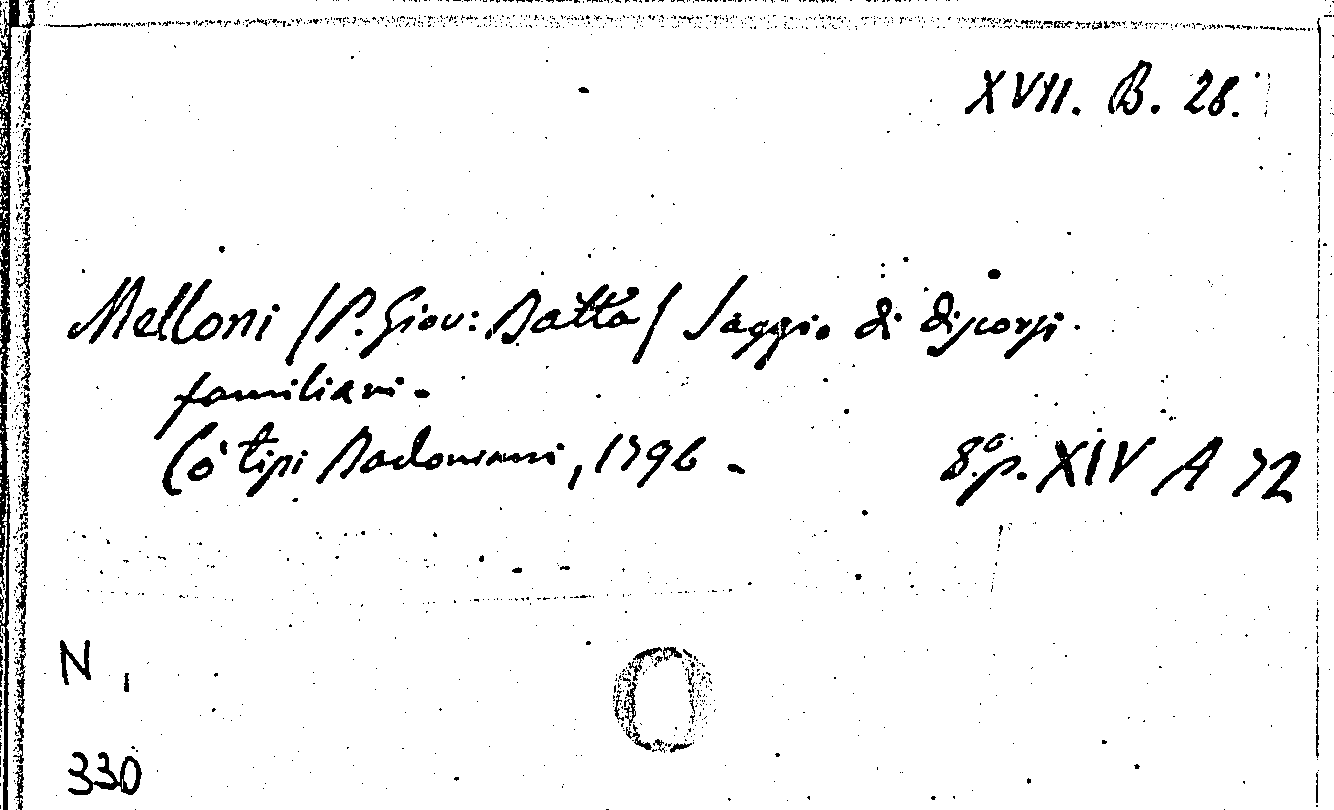 XVII. B. 28.
Melloni /P. Giov: Batta/ Saggio di discorsi
familiari.
Co' tipi Bodoniani, 1796. 8.° p. XIV A 72
N,
330